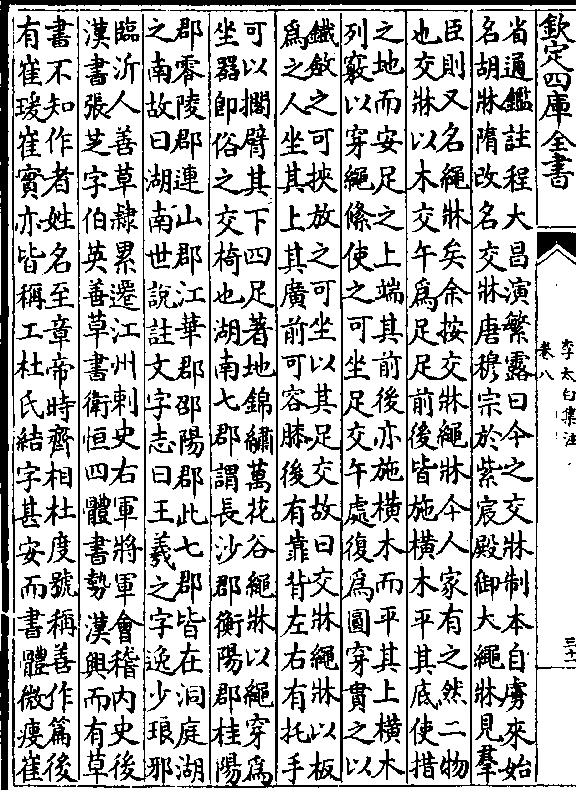 欽定四庫全書
李太白集注
卷八
三十一
省通鑑註程大昌演繁露曰今之交牀制本自虜來始
名胡牀隋改名交牀唐穆宗於紫宸殿御大繩牀見羣
臣則又名繩牀矣余按交牀繩牀今人家有之然二物
也交牀以木交午為足足前後皆施橫木平其底使措
之地而安足之上端其前後亦施橫木而平其上橫木
列竅以穿繩絛使之可坐足交午處復為圓穿貫之以
鐵斂之可挾放之可坐以其足交故曰交牀繩牀以板
為之人坐其上其廣前可容膝後有靠背左右有托手
可以擱臂其下四足著地錦繡萬花谷繩牀以繩穿為
坐器即俗之交椅也湖南七郡謂長沙郡衡陽郡桂陽
郡零陵郡連山郡江華郡邵陽郡此七郡皆在洞庭湖
之南故曰湖南世說註文字志曰王羲之字逸少琅邪
臨沂人善草隸累遷江州刺史右軍將軍會稽內史後
漢書張芝字伯英善草書衛恒四體書勢漢興而有草
書不知作者姓名至章帝時齊相杜度號稱善作篇後
有崔瑗崔實亦皆稱工杜氏結字甚安而書體微瘦崔